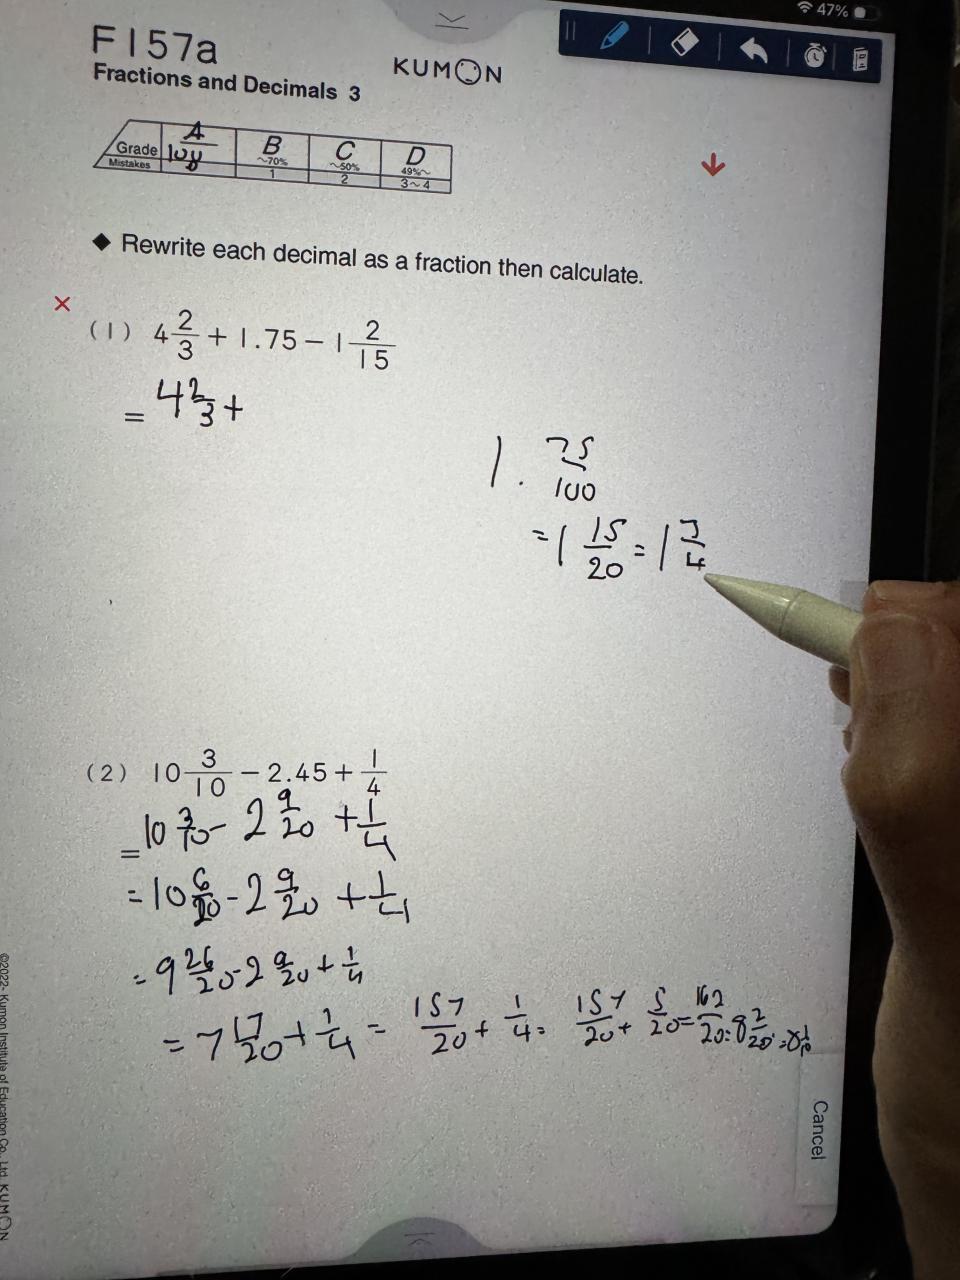 47%
F157a
KUMON
Fractions and Decimals 3
Grade A B C D
100% ~70% ~50% 49%~
Mistakes 1 2 3~4
◆ Rewrite each decimal as a fraction then calculate.
×
(1) 4 2/3 + 1.75 − 1 2/15
= 4 2/3 +
1. 75/100
= 1 15/20 = 1 3/4
(2) 10 3/10 − 2.45 + 1/4
= 10 3/10 - 2 9/20 + 1/4
= 10 6/20 - 2 9/20 + 1/4
= 9 26/20 - 2 9/20 + 1/4
= 7 17/20 + 1/4 = 157/20 + 1/4 = 157/20 + 5/20 = 162/20 = 8 2/20 = 8 1/10
Cancel
©2022- Kumon Institute of Education Co., Ltd. KUMON